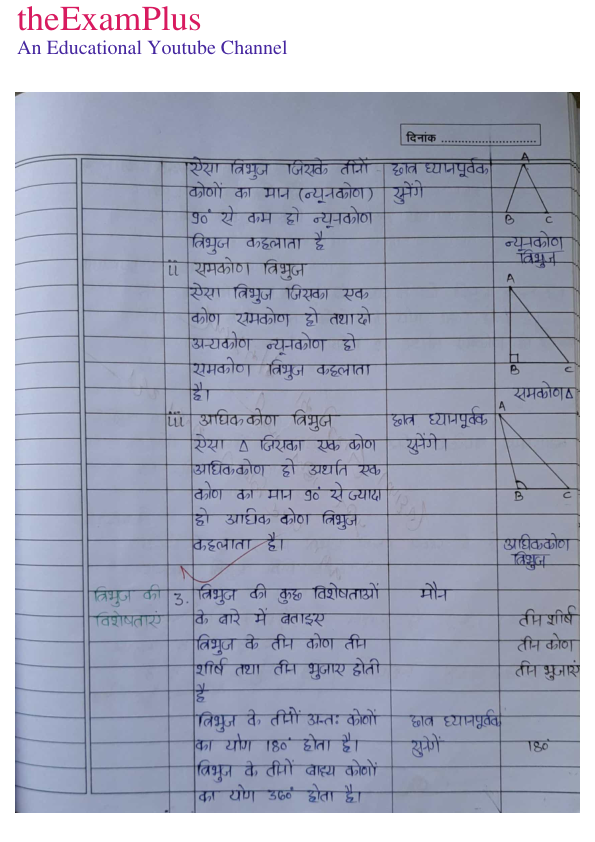 theExamPlus
An Educational Youtube Channel
दिनांक ............................
ऐसा त्रिभुज जिसके तीनों
कोणों का मान (न्यूनकोण)
90° से कम हो न्यूनकोण
त्रिभुज कहलाता है
छात्र ध्यानपूर्वक
सुनेंगे
A
B C
न्यूनकोण
त्रिभुज
ii समकोण त्रिभुज
ऐसा त्रिभुज जिसका एक
कोण समकोण हो तथा दो
अन्यकोण न्यूनकोण हो
समकोण त्रिभुज कहलाता
है।
A
B C
समकोण Δ
iii अधिककोण त्रिभुज
ऐसा Δ जिसका एक कोण
अधिककोण हो अर्थात एक
कोण का मान 90° से ज्यादा
हो अधिक कोण त्रिभुज
कहलाता है।
छात्र ध्यानपूर्वक
सुनेंगे।
A
B C
अधिककोण
त्रिभुज
त्रिभुज की
विशेषताएं
3. त्रिभुज की कुछ विशेषताओं
के बारे में बताइए
त्रिभुज के तीन कोण तीन
शीर्ष तथा तीन भुजाए होती
है
मौन
तीन शीर्ष
तीन कोण
तीन भुजाएं
त्रिभुज के तीनों अन्तः कोणों
का योग 180° होता है।
त्रिभुज के तीनों बाह्य कोणों
का योग 360° होता है।
छात्र ध्यानपूर्वक
सुनेगें
180°